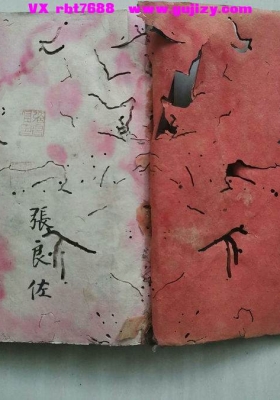 VX rbt7688 www.gujizy.com
張良佐